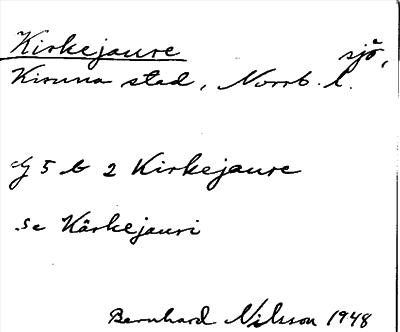 Kirkejaure sjö,
Kiruna stad, Norrb. l.
G 5 b 2 Kirkejaure
Se Kärkejauri
Bernhard Nilsson 1948